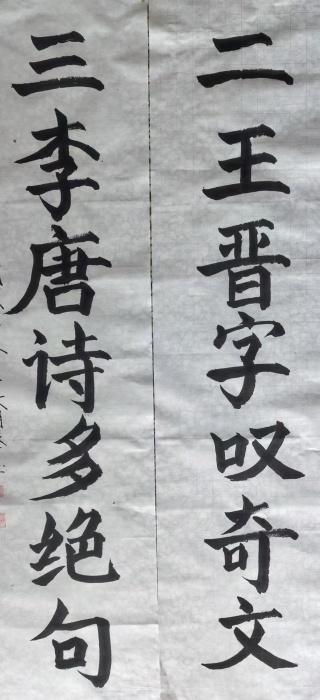 二王晋字叹奇文
三李唐诗多绝句